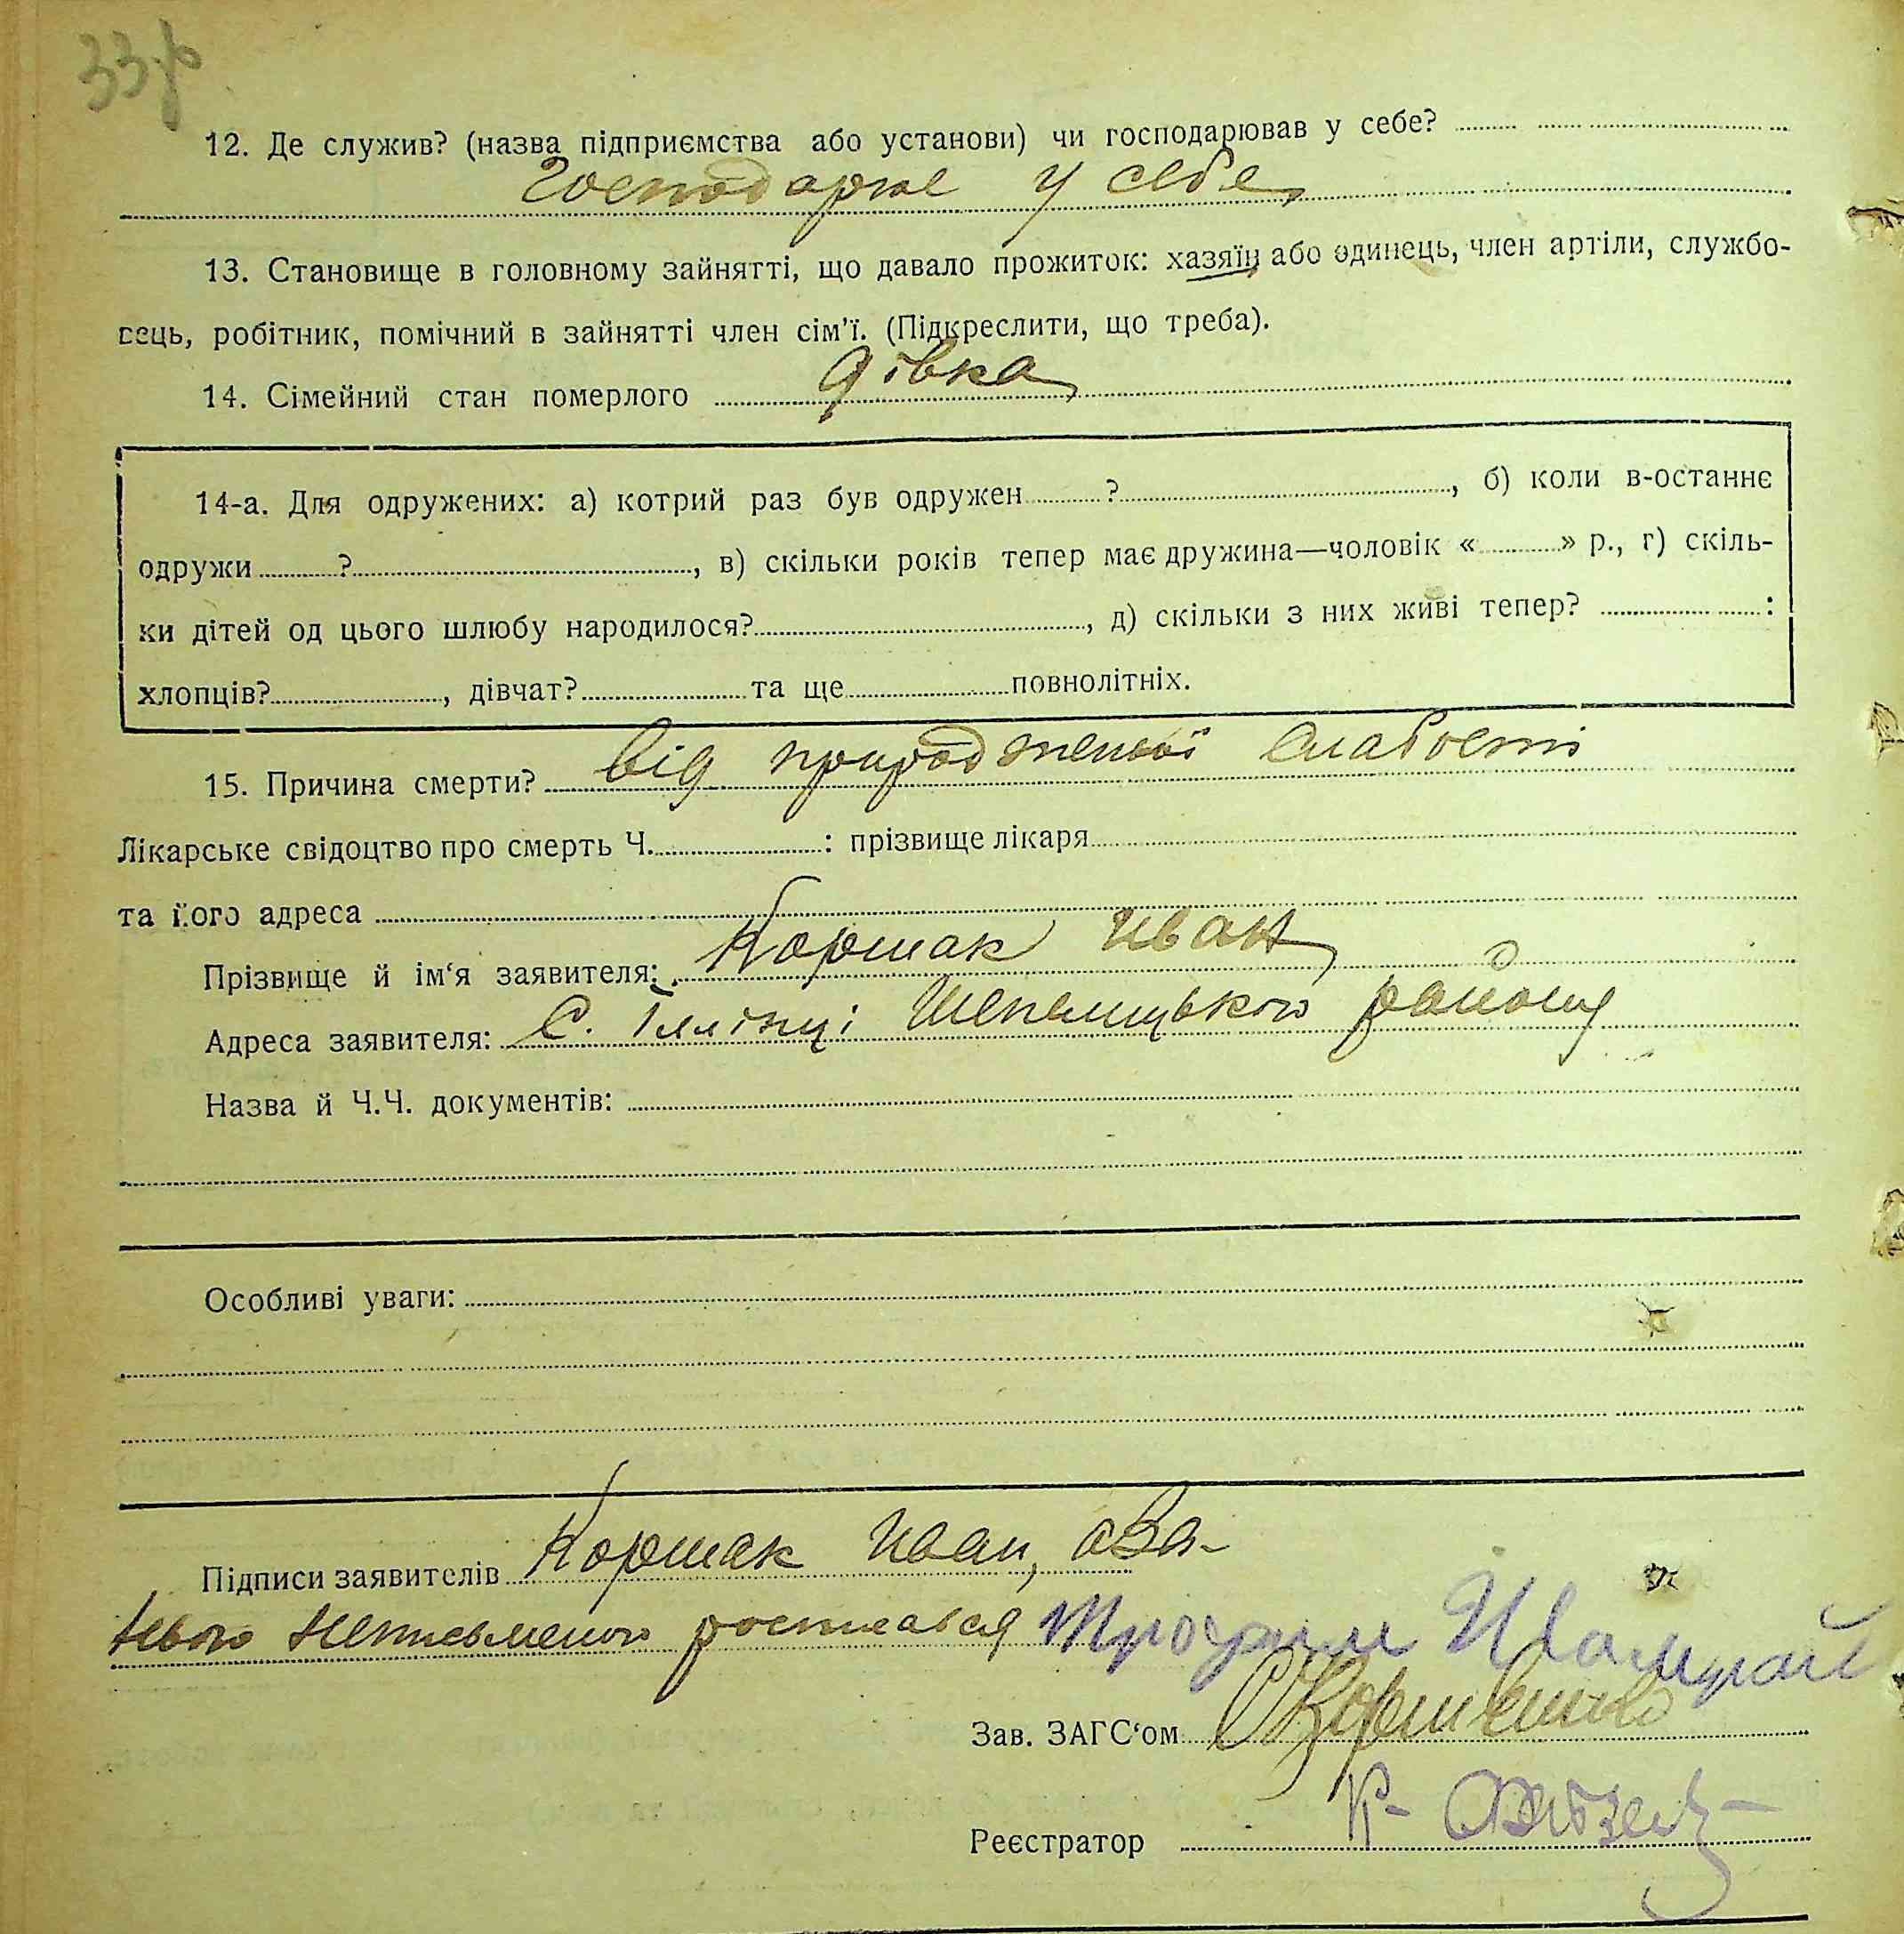 33
12. Де служив? (назва підприємства або установи) чи господарював у себе?
Господарює у себе
13. Становище в головному зайнятті, що давало прожиток: хазяїн або одинець, член артіли, службо-
вець, робітник, помічний в зайнятті член сім'ї. (Підкреслити, що треба).
14. Сімейний стан померлого дівка
14-а. Для одружених: а) котрий раз був одружен ?, б) коли в-останнє
одружи ?, в) скільки років тепер має дружина—чоловік « » р., г) скіль-
ки дітей од цього шлюбу народилося?, д) скільки з них живі тепер? :
хлопців?, дівчат? та ще повнолітніх.
15. Причина смерти? від природженої слабости
Лікарське свідоцтво про смерть Ч. : прізвище лікаря
та його адреса
Прізвище й ім'я заявителя: Коршак Иван
Адреса заявителя: С. Іллінці района
Назва й Ч.Ч. документів:
Особливі уваги:
Підписи заявителів Коршак Иван, а за
нього неписьменого росписався
Зав. ЗАГС'ом
Реєстратор